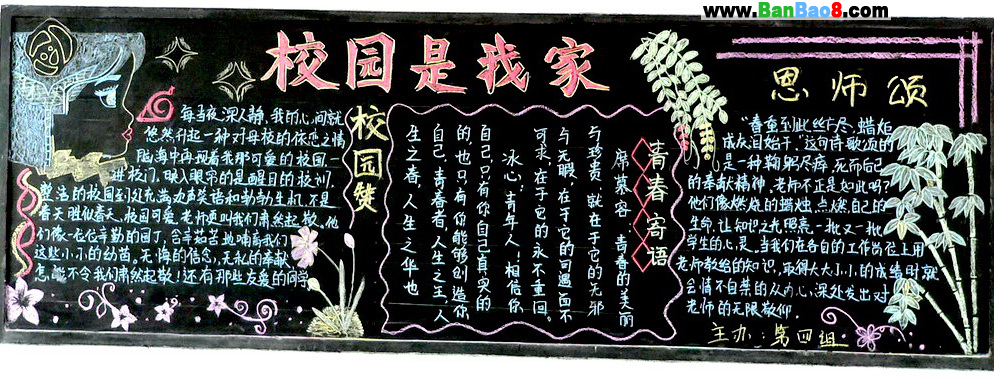 www.BanBao8.com
校园是我家
校园赞
每当夜深人静,我的心间就
悠然升起一种对母校的依恋之情
脑海中再现着我那可爱的校园。一
进校门,映入眼帘的是醒目的校训,
整洁的校园到处充满欢声笑语和勃勃生机,不是
春天胜似春天。校园可爱,老师更叫我们肃然起敬。他
们像一位位辛勤的园丁,含辛茹苦地哺育我们
这些小小的幼苗。无悔的信念,无私的奉献
怎能不令我们肃然起敬!还有那些友爱的同学
青春寄语
席慕容:青春的美丽
与珍贵,就在于它的无邪
与无瑕,在于它的可遇而不
可求,在于它的永不重回。
冰心:青年人!相信你
自己,只有你自己是真实的
的,也只有你能够创造你
自己,青春者,人生之王,人
生之春,人生之华也
恩师颂
“春蚕到死丝方尽,蜡炬
成灰泪始干。”这句诗歌颂的
是一种鞠躬尽瘁,死而后已
的奉献精神,老师不正是如此吗?
他们像燃烧的蜡烛,点燃自己的
生命,让知识之光照亮一批又一批
学生的心灵。当我们在各自的工作岗位上用
老师教给的知识,取得大大小小的成绩时,就
会情不自禁的从内心深处发出对
老师的无限敬仰。
主办:第四组